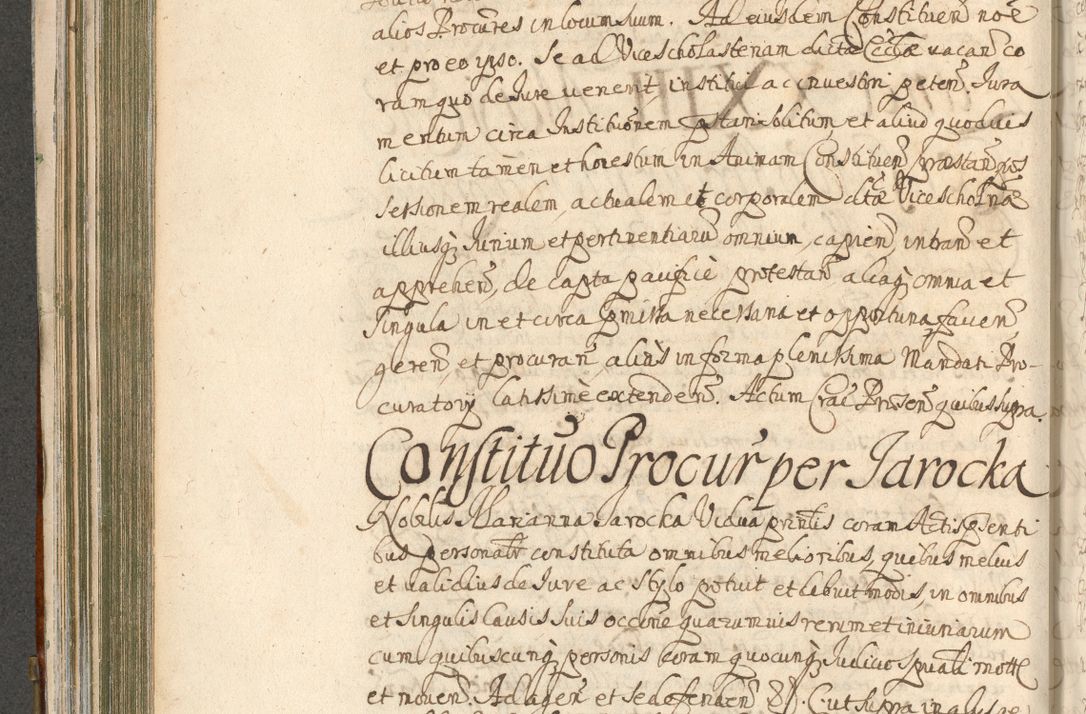 alios Procu͂res in locum suum. Ad eiusdem Constituen̄ noe͂
et pro eo ipso. Se ad Vice scholasteriam dicta͂ Eccliæ vacan̄ co
ram quo de Jure venerit, institui ac investiri peten̄ Jura
mentum circa Instituo͂nem pstari solitum, et aliud quoduis
licitum tamen et honestum in Animam Constituen̄ præstan̄ pos
sessionem realem, actualem et corporalem dtæ Vice scholriæ
illiusq; Jurium et pertinentiaru͂ omnium, capien̄ intran̄ et
apprehen̄, de capta pacifice protestan̄ aliaq; omnia et
singula in et circa pmissa necessaria et opportuna facien̄
geren̄, et procuran̄ alias in forma plenissima Mandati Pro-
curatorij latissime extenden̄. Actum Crac Præsen̄ quibus supra.
Constituo͂ Procur͂ per Jarocka
Nobilis Marianna Jarocka Vidua prin̄lis coram Actis psenti
bus personalr͂ constituta omnibus melioribus, quibus melius
et validius de Jure ac stylo potuit et debuit modis, in omnibus
et singulis causis suis occo͂ne quarumuis rerum et iniuriarum
cum quibuscunq; personis coram quocunq; Judicio spuali motis
et mouen̄. Ad agen̄ et se defenden̄ &c. C. ut supra in alijs